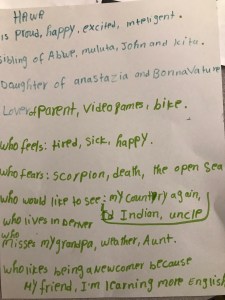 HAWA
is proud, happy, excited, inteligent.
sibling of Abwe, muluta, John and kitu.
Daughter of anastazia and BonnaVature
Lover of Parent, Video games, bike.
who feels: tired, sick, happy.
who fears: scorpion, death, the open Sea
who would like to see: my country again,
who lives in Denver and Indian, uncle
who misses my grandpa, weather, Aunt.
who likes being a newcomer because
My friend, I'm learning more English